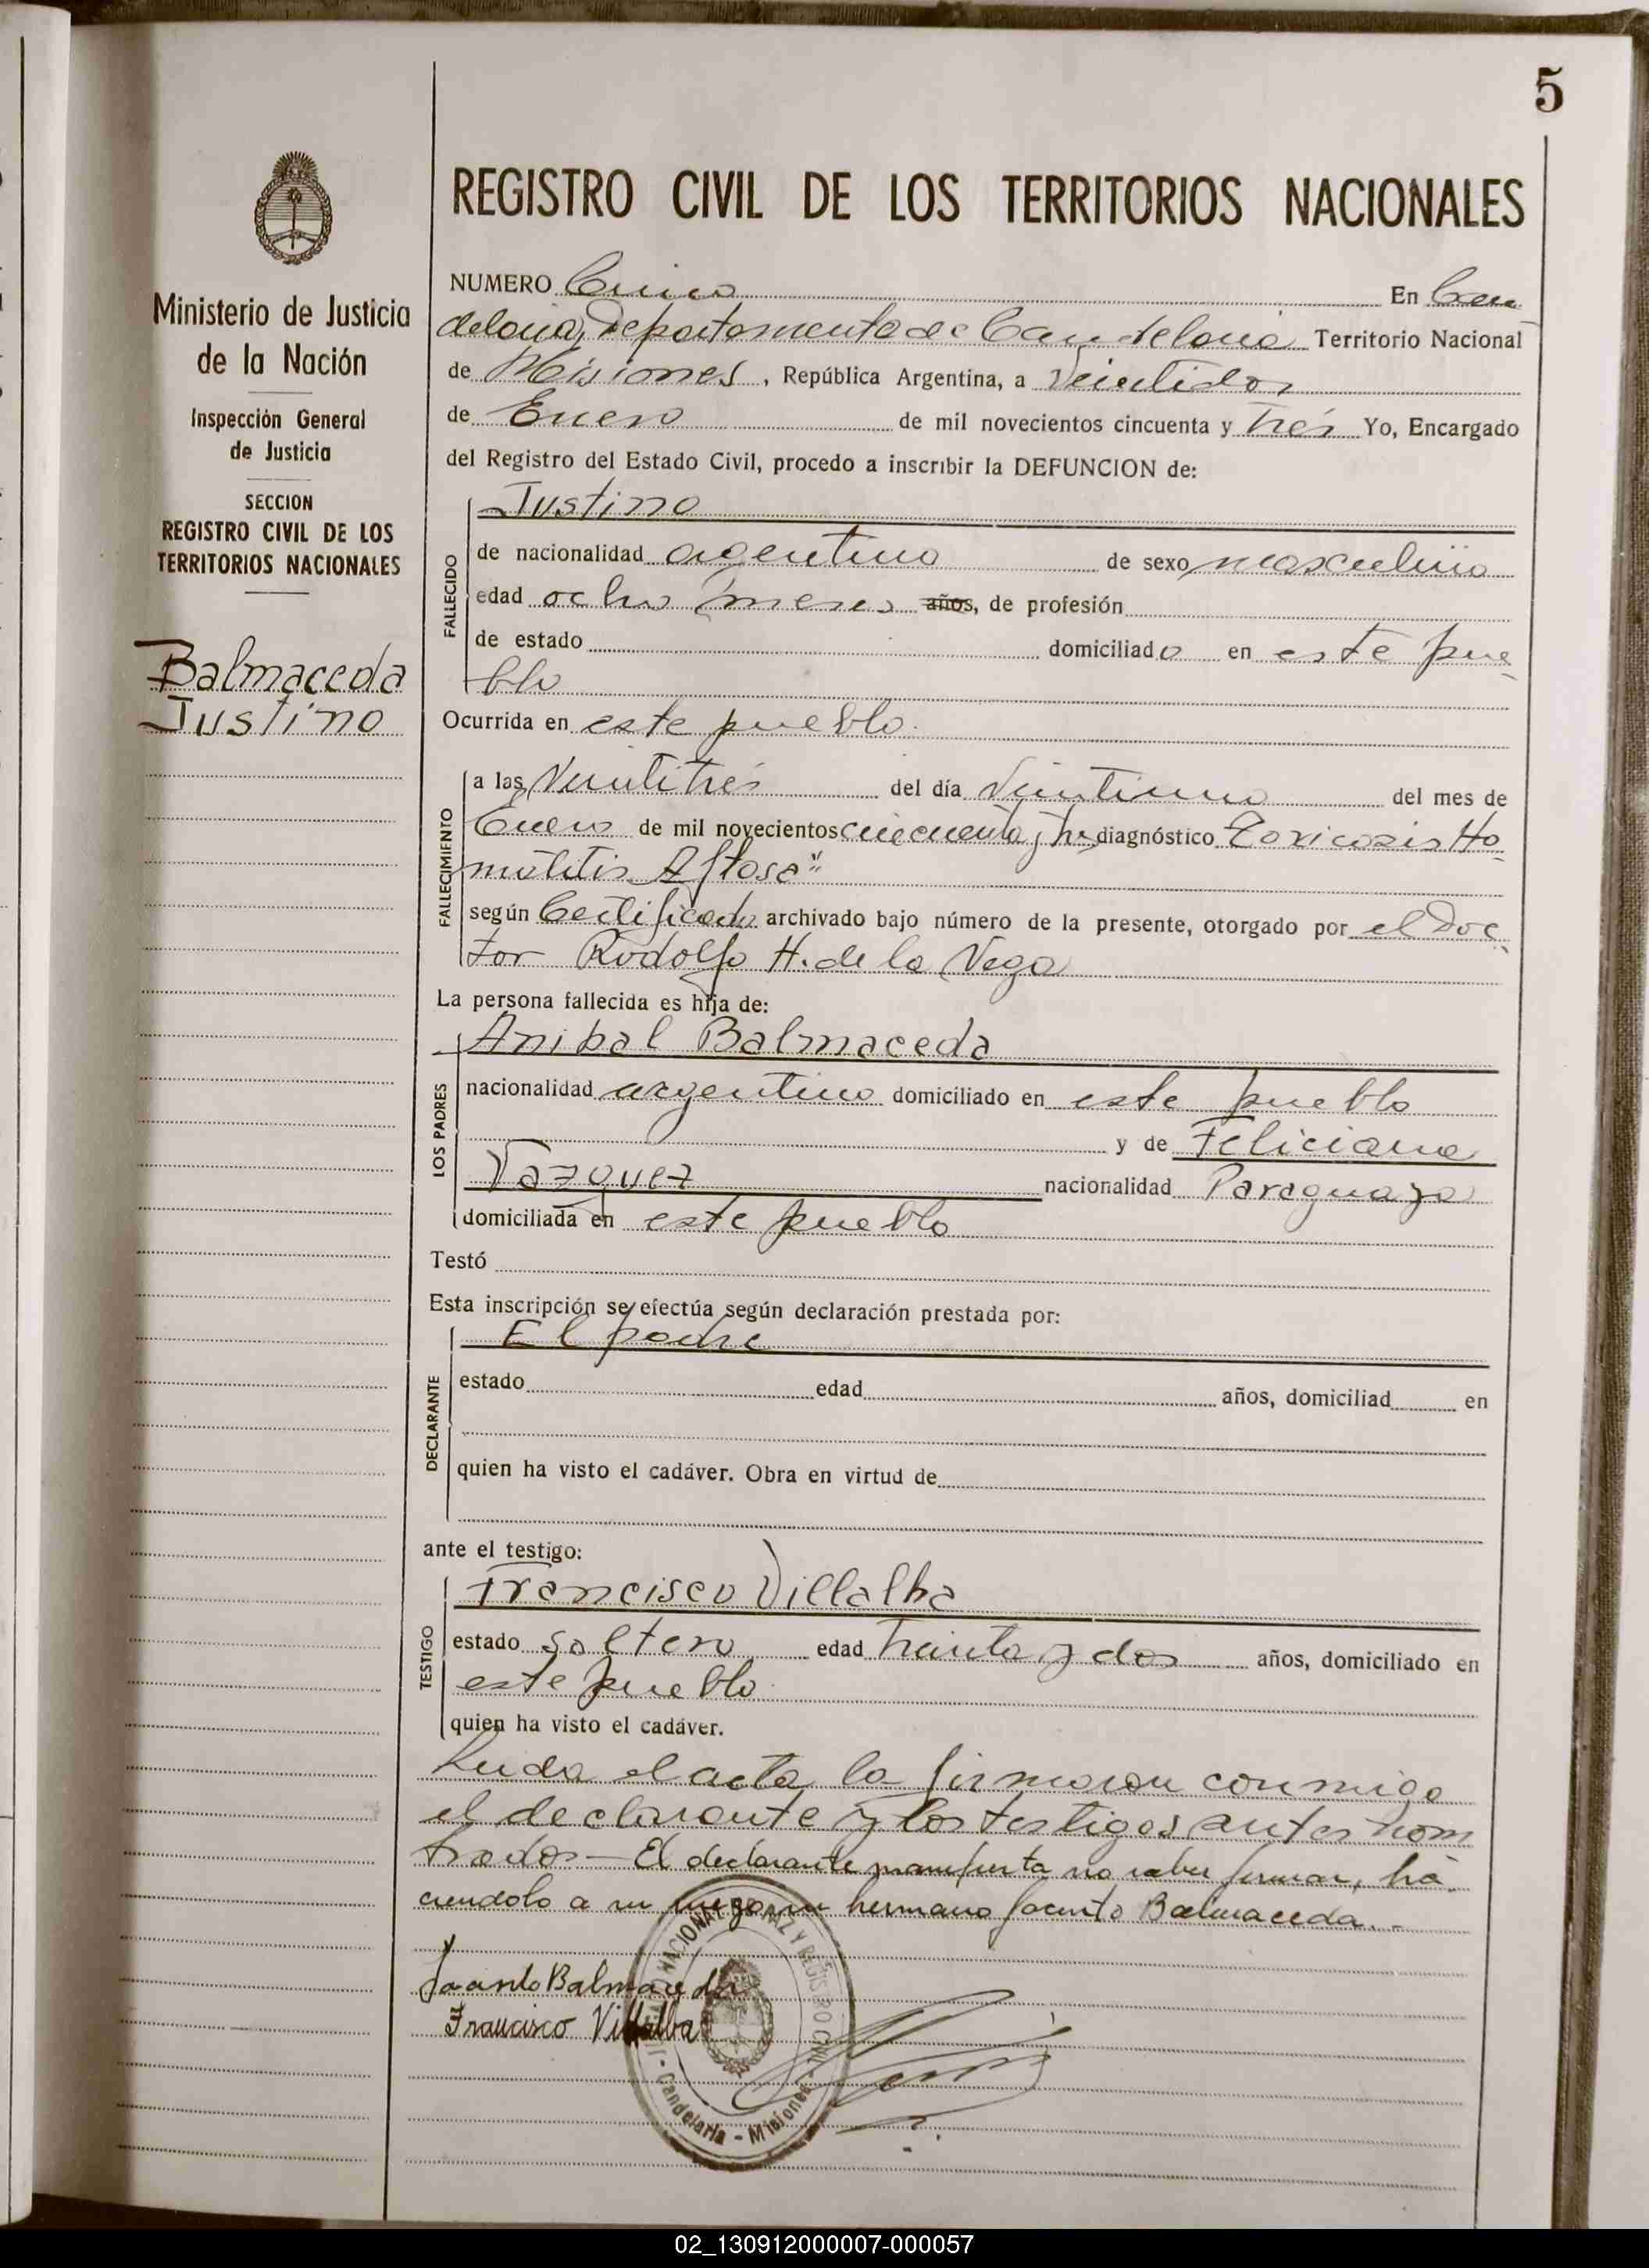 5
REGISTRO CIVIL DE LOS TERRITORIOS NACIONALES
Ministerio de Justicia
de la Nación
Inspección General
de Justicia
SECCION
REGISTRO CIVIL DE LOS
TERRITORIOS NACIONALES
Balmaceda
Justino
NUMERO Cinco En Can
delaria, Departamento de Candelaria Territorio Nacional
de Misiones, República Argentina, a Veintidos
de Enero de mil novecientos cincuenta y Tres Yo, Encargado
del Registro del Estado Civil, procedo a inscribir la DEFUNCION de:
Justino
FALLECIDO
de nacionalidad argentino de sexo masculino
edad ocho meses años, de profesión
de estado domiciliado en este pue
blo
Ocurrida en este pueblo.
FALLECIMIENTO
a las Veintitres del día Veintiuno del mes de
Enero de mil novecientos cincuenta y tres diagnóstico Toxicosis
Aftosa"
según Certificado archivado bajo número de la presente, otorgado por el Doc
tor Rodolfo H. de la Vega
La persona fallecida es hija de:
Anibal Balmaceda
LOS PADRES
nacionalidad argentino domiciliado en este pueblo
y de Feliciana
Vazquez nacionalidad Paraguaya
domiciliada en este pueblo
Testó
Esta inscripción se efectúa según declaración prestada por:
El padre
DECLARANTE
estado edad años, domiciliad en
quien ha visto el cadáver. Obra en virtud de
ante el testigo:
Francisco Villalba
TESTIGO
estado soltero edad Treinta y dos años, domiciliado en
este pueblo.
quien ha visto el cadáver.
Leida el acta la firmaron conmigo
el declarante y los testigos antes nom
brados - El declarante manifiesta no saber firmar, ha
ciendolo a su ruego su hermano Jacinto Balmaceda. -
Jacinto Balmaceda
Francisco Villalba
NACIONAL DE PAZ Y REGISTRO CIVIL
Candelaria - Misiones
02_130912000007-000057